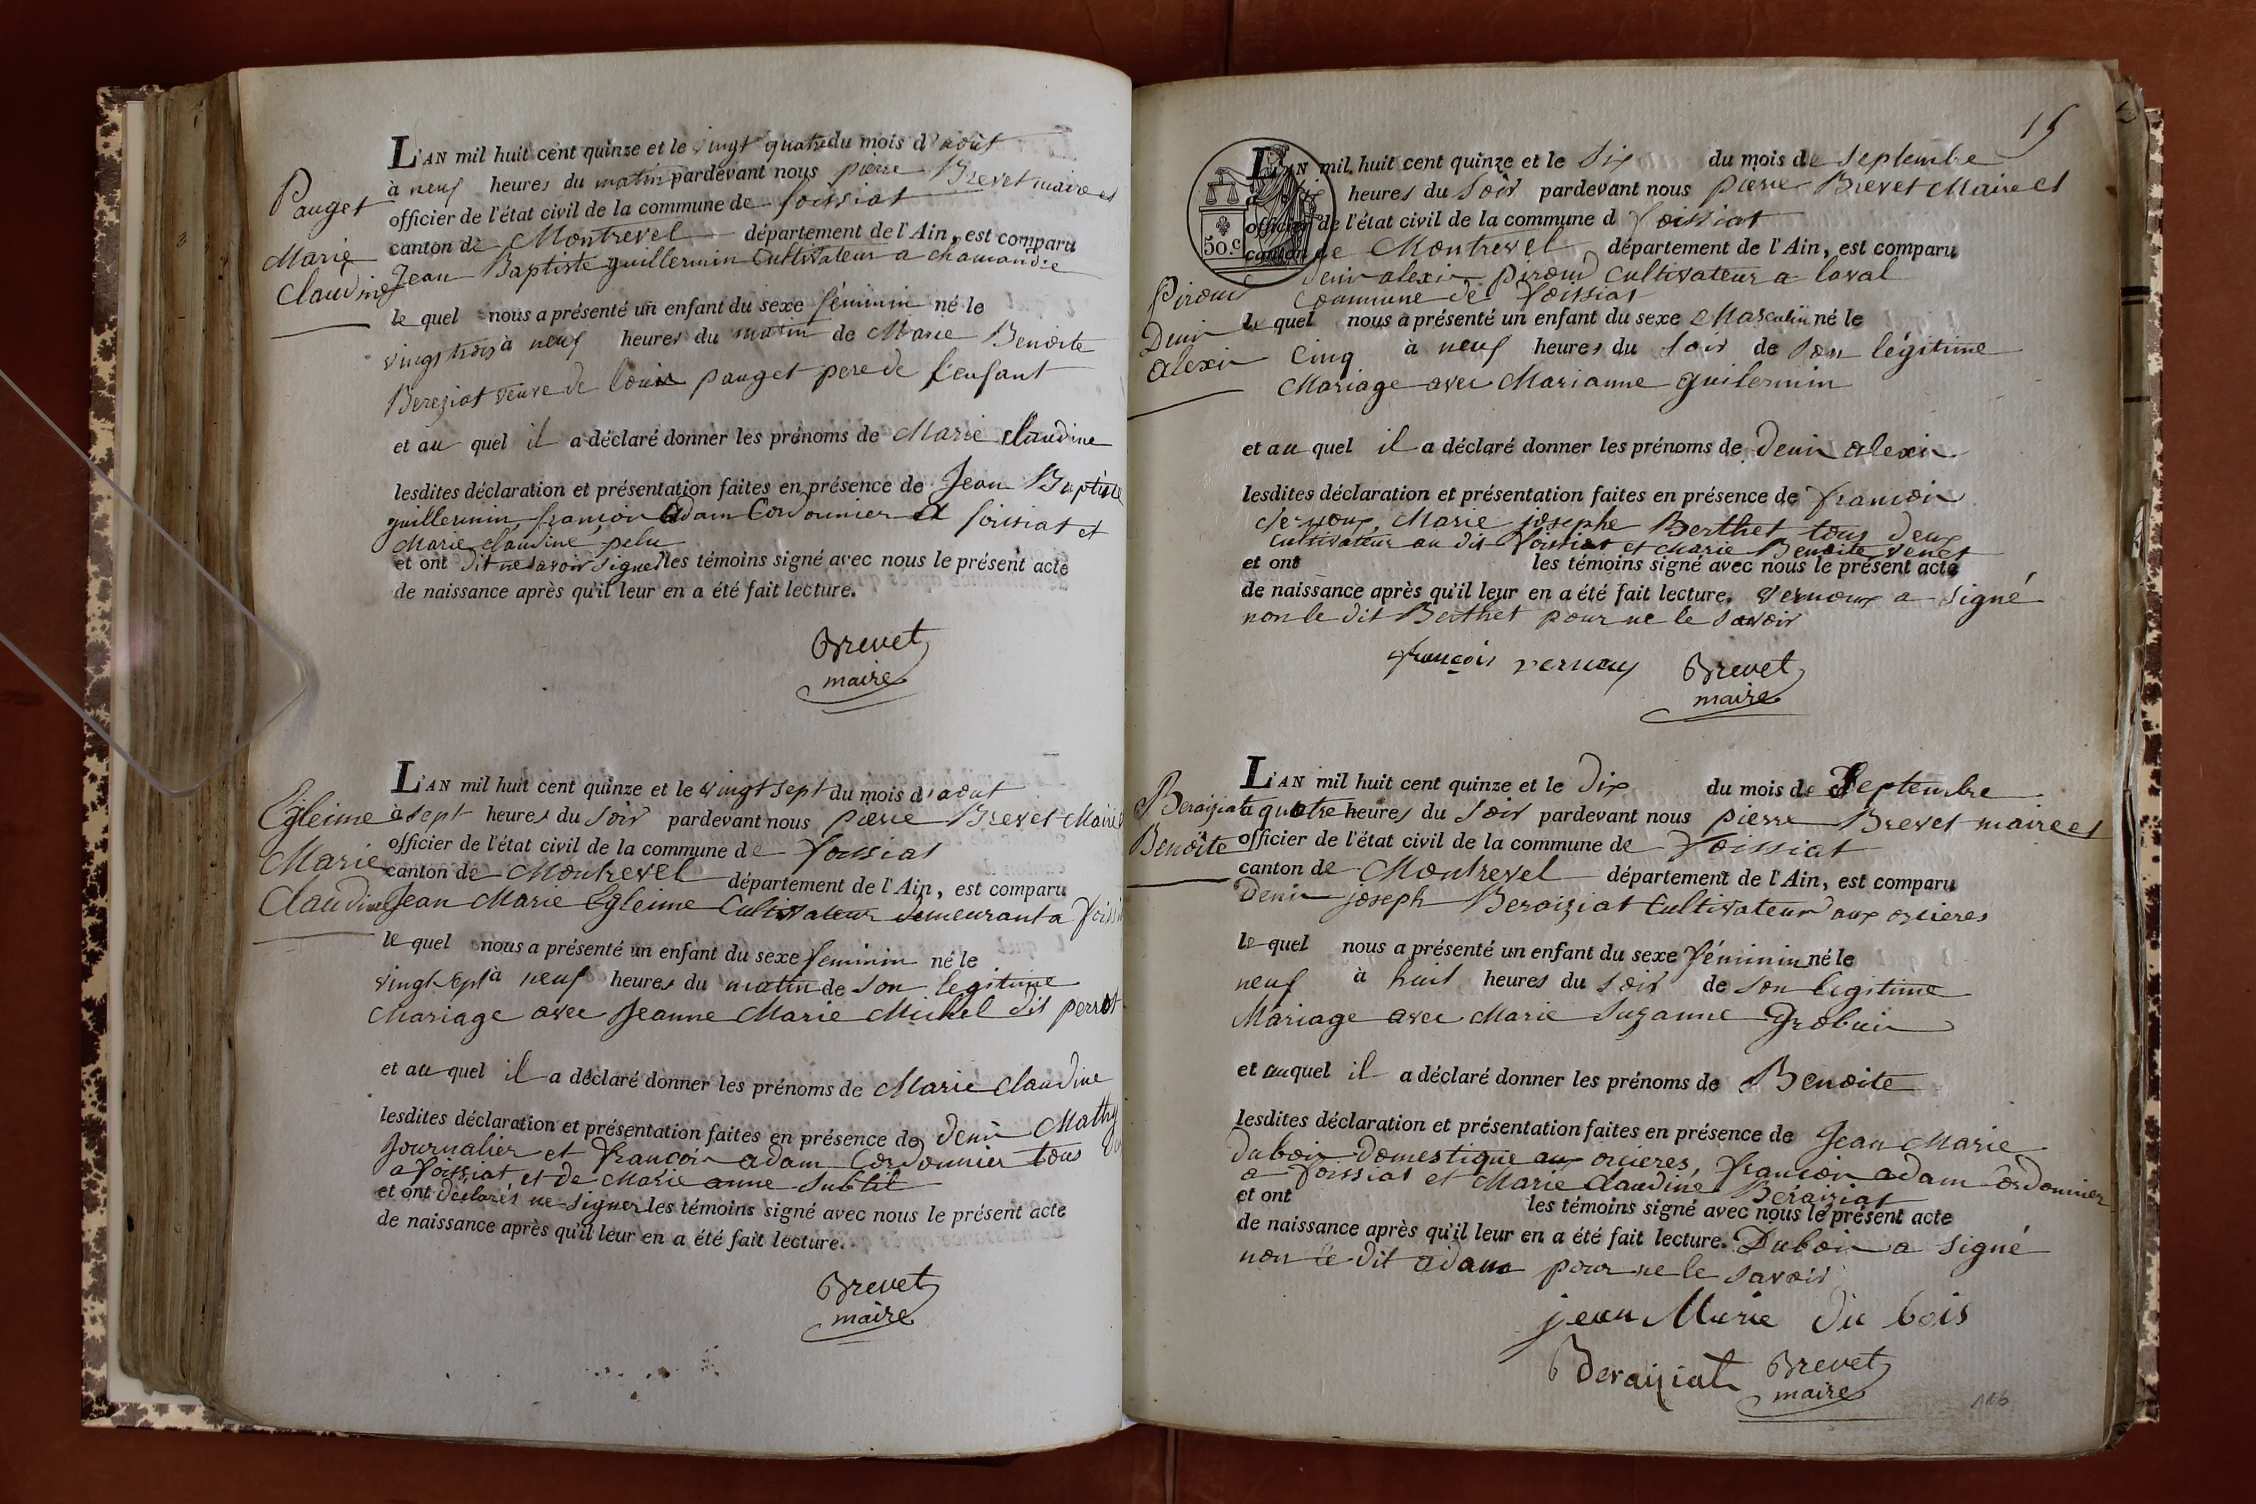 Pauget
Marie
Claudine
L'AN mil huit cent quinze et le vingt quatre du mois d'août
à neuf heures du matin pardevant nous pierre Brevet maire et
officier de l'état civil de la commune de foissiat
canton de Montrevel département de l'Ain, est comparu
Jean Baptiste guillermin Cultivateur a chamandie
le quel nous a présenté un enfant du sexe féminin né le
vingt trois à neuf heures du matin de Marie Benoite
Bereziat veuve de louis pauget pere de l'enfant
et au quel il a déclaré donner les prénoms de Marie claudine
lesdites déclaration et présentation faites en présence de Jean Baptiste
guillermin, françois adam Cordonnier a foissiat et
Marie claudine pelu
et ont dit ne savoir signer les témoins signé avec nous le présent acte
de naissance après qu'il leur en a été fait lecture.
Brevet
maire
Egleime
Marie
Claudine
L'AN mil huit cent quinze et le vingt sept du mois d'aout
à sept heures du soir pardevant nous pierre Brevet Maire
officier de l'état civil de la commune de foissiat
canton de Montrevel département de l'Ain, est comparu
Jean Marie Egleime Cultivateur demeurant a
le quel nous a présenté un enfant du sexe feminin né le
vingt sept à neuf heures du matin de son legitime
Mariage avec Jeanne Marie Michel dit perrot
et au quel il a déclaré donner les prénoms de Marie claudine
lesdites déclaration et présentation faites en présence de denis Mathy
Journalier et françois adam Cordonnier tous
a foissiat et de Marie anne subtil
et ont déclarés ne signer les témoins signé avec nous le présent acte
de naissance après qu'il leur en a été fait lecture.
Brevet
maire
15
50.c
Piroud
Denis
alexis
L'AN mil huit cent quinze et le six du mois de septembre
heures du soir pardevant nous pierre Brevet Maire et
officier de l'état civil de la commune d foissiat
canton de Montrevel département de l'Ain, est comparu
denis alexis piroud cultivateur a laval
commune de foissiat
le quel nous a présenté un enfant du sexe Masculin né le
cinq à neuf heures du soir de son légitime
Mariage avec Marianne guilermin
et au quel il a déclaré donner les prénoms de denis alexis
lesdites déclaration et présentation faites en présence de françois
vernoux, Marie josephe Berthet tous deux
cultivateur au dit foissiat et Marie Benoite venet
et ont les témoins signé avec nous le présent acte
de naissance après qu'il leur en a été fait lecture. vernoux a signé
non le dit Berthet pour ne le savoir
françois vernoux Brevet
maire
Beraiziat
Benoite
L'AN mil huit cent quinze et le dix du mois de septembre
à quatre heures du soir pardevant nous pierre Brevet maire et
officier de l'état civil de la commune de foissiat
canton de Montrevel département de l'Ain, est comparu
Denis joseph Beraiziat Cultivateur aux orcieres
le quel nous a présenté un enfant du sexe féminin né le
neuf à huit heures du soir de son legitime
Mariage avec Marie Suzanne Grobuis
et auquel il a déclaré donner les prénoms de Benoite
lesdites déclaration et présentation faites en présence de Jean Marie
Dubois domestique aux orcieres, françois adam cordonnier
a foissiat et Marie claudine Beraiziat
et ont les témoins signé avec nous le présent acte
de naissance après qu'il leur en a été fait lecture. Dubois a signé
non le dit adam pour ne le savoir
jean Marie du bois
Beraiziat Brevet
maire
116